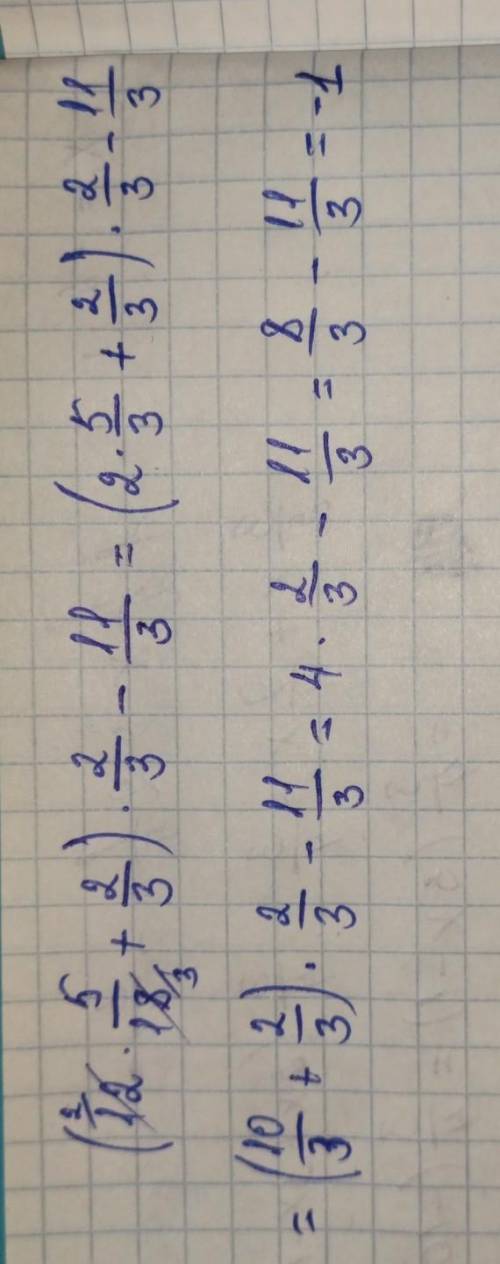 (12 · 5/18 + 2/3) · 2/3 - 11/3 = (2 · 5/3 + 2/3) · 2/3 - 11/3
= (10/3 + 2/3) · 2/3 - 11/3 = 4 · 2/3 - 11/3 = 8/3 - 11/3 = -1